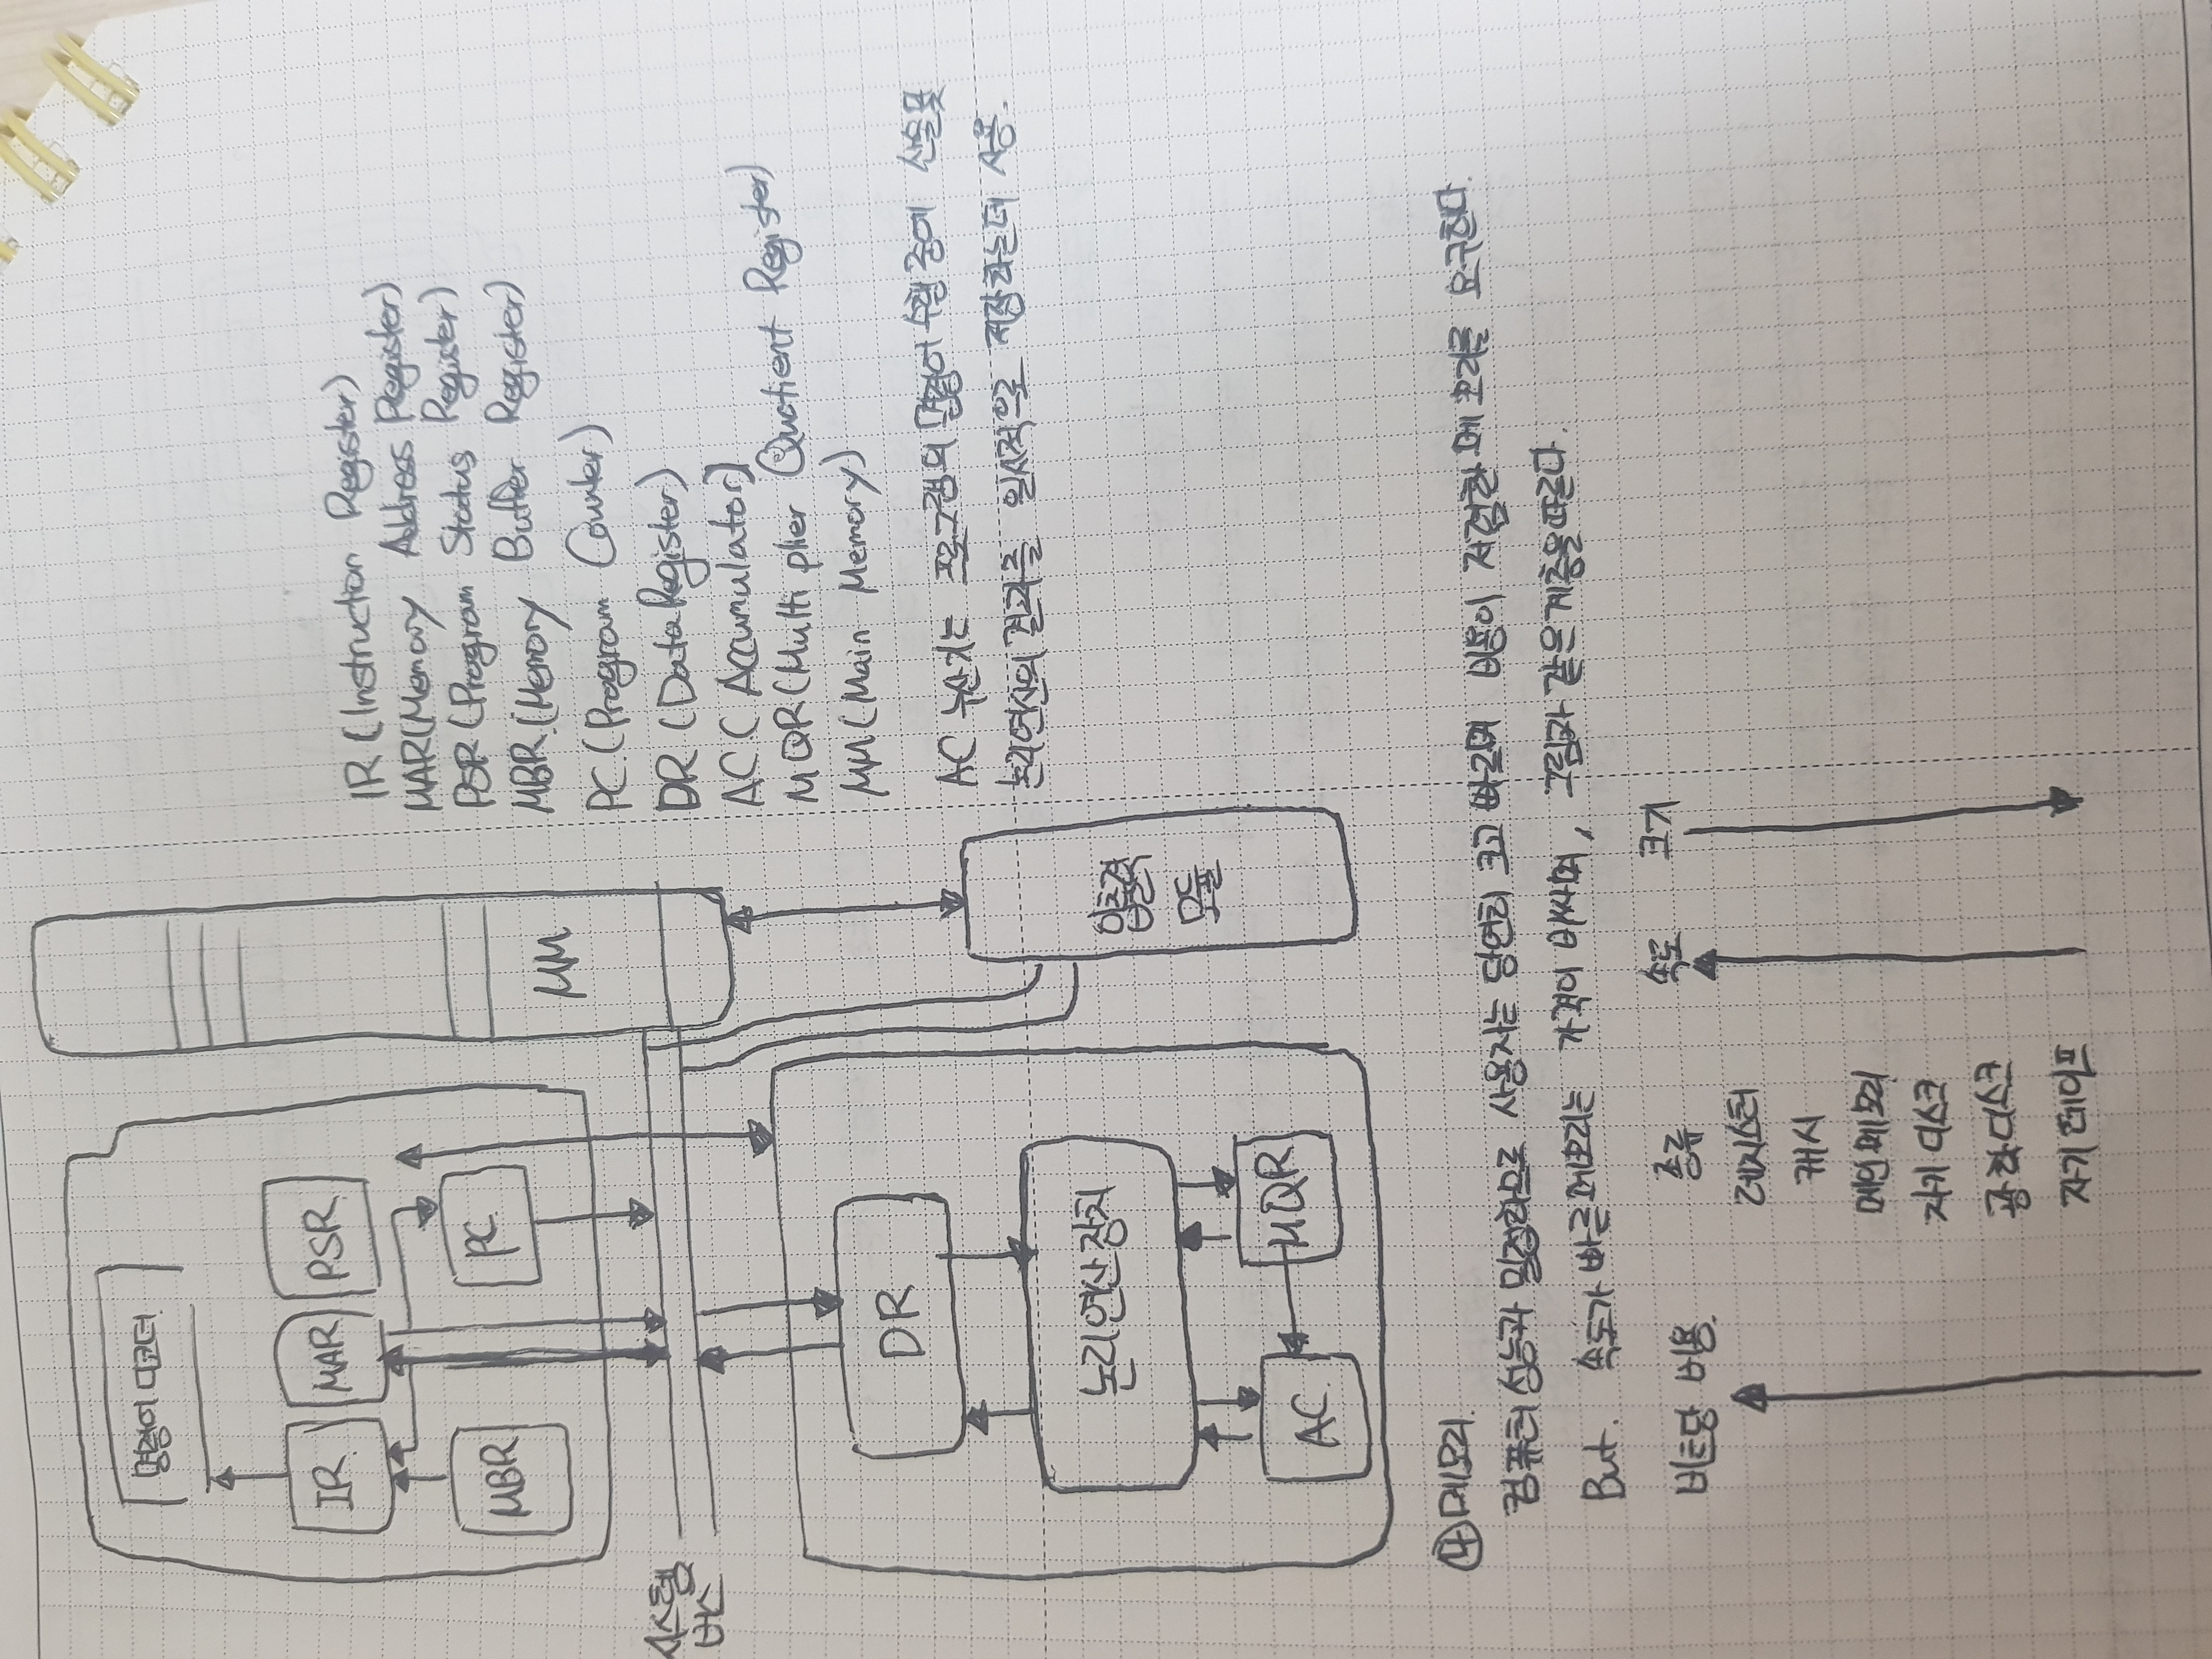 명령어 디코더
IR
MAR
PSR
MBR
PC
MM
시스템
버스
DR
논리연산장치
AC
MQR
입출력
모듈
IR (Instruction Register)
MAR (Memory Address Register)
PSR (Program Status Register)
MBR (Memory Buffer Register)
PC (Program Counter)
DR (Data Register)
AC ( Accumulator)
MQR (Multiplier Quotient Register)
MM (Main Memory)
AC 누산기는 프로그램의 명령어 수행 중에 산술 및
논리연산의 결과를 일시적으로 저장하는데 사용.
④ 메모리.
컴퓨터 성능과 밀접하므로 사용자는 당연히 크고 빠르며 비용이 저렴한 메모리를 요구한다.
But. 속도가 빠른 메모리는 가격이 비싸며, 그림과 같은 계층을 따른다.
비트당 비용. 종류 속도 크기
레지스터
캐시
메인 메모리
자기 디스크
광학 디스크
자기 테이프